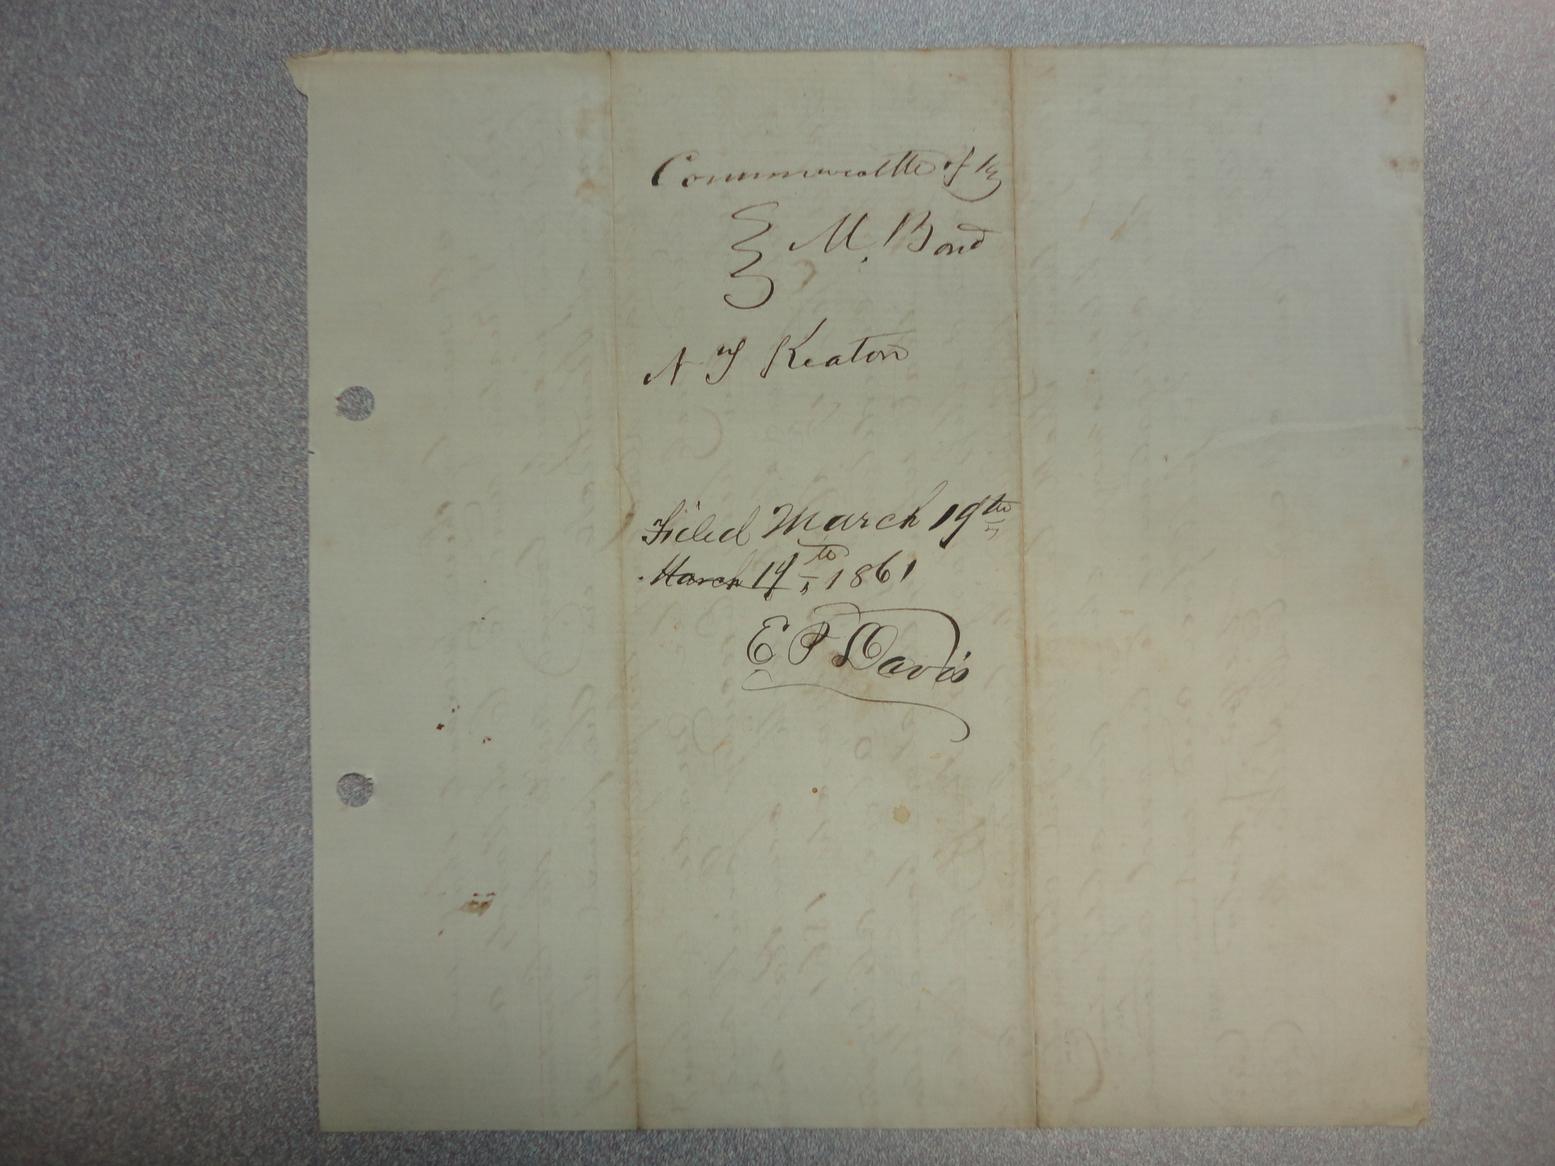 Commonwealth of Ky
M. Bond
N Keaton
Filed March 19th
March 19th 1861
E P Davis